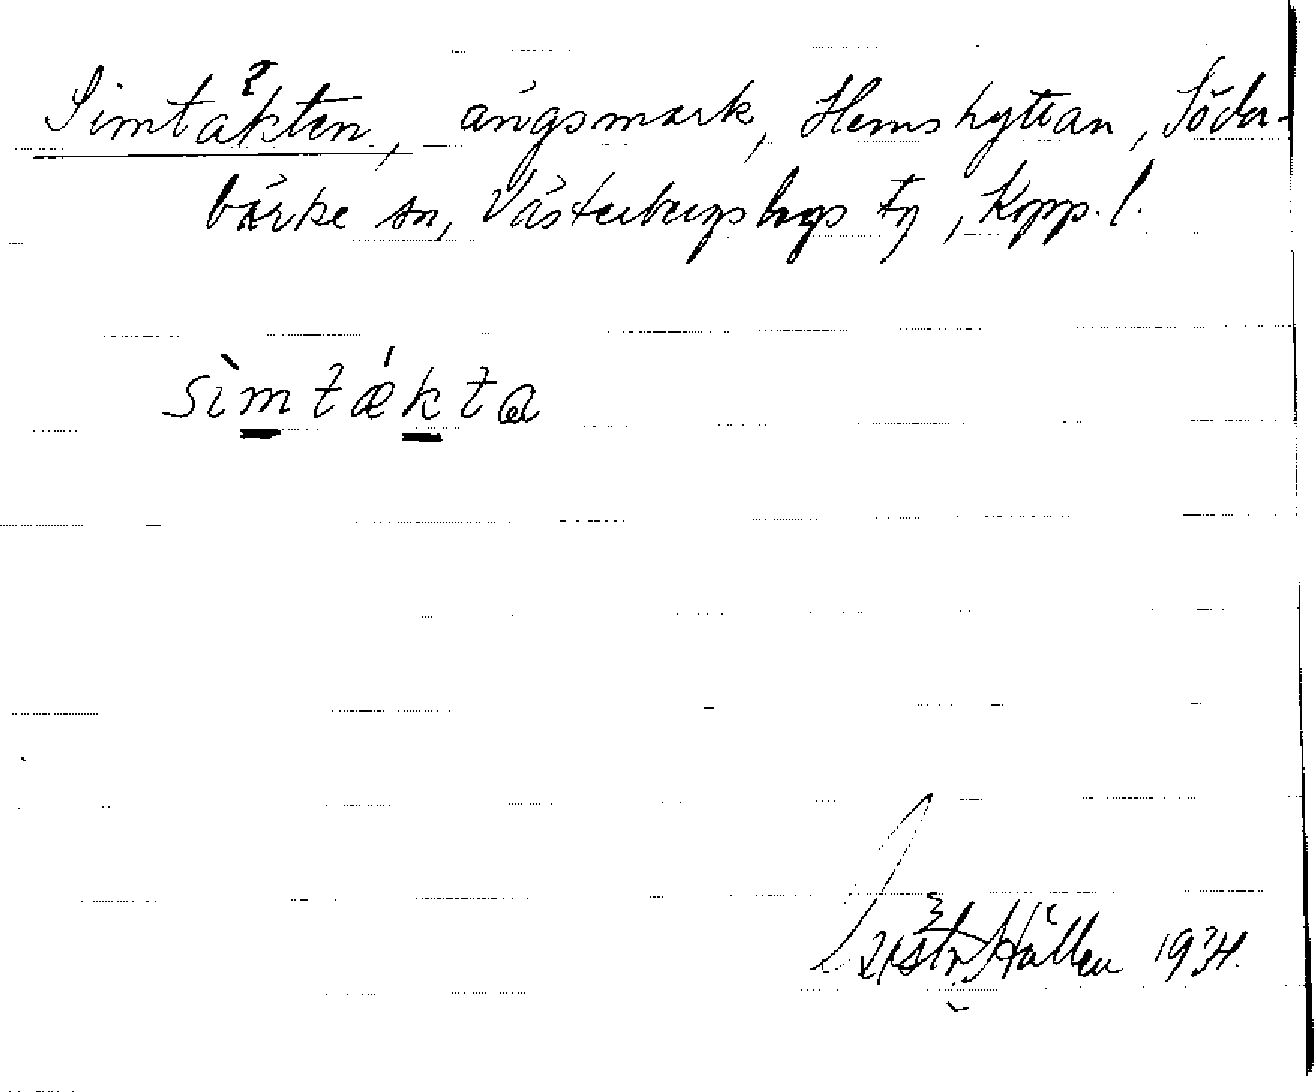 Simtäkten, ängsmark, Hemshyttan, Söder-
bärke sn, Västerbergslags fg, Kopp. l.
sìmtǽkta
Hällen 1934.